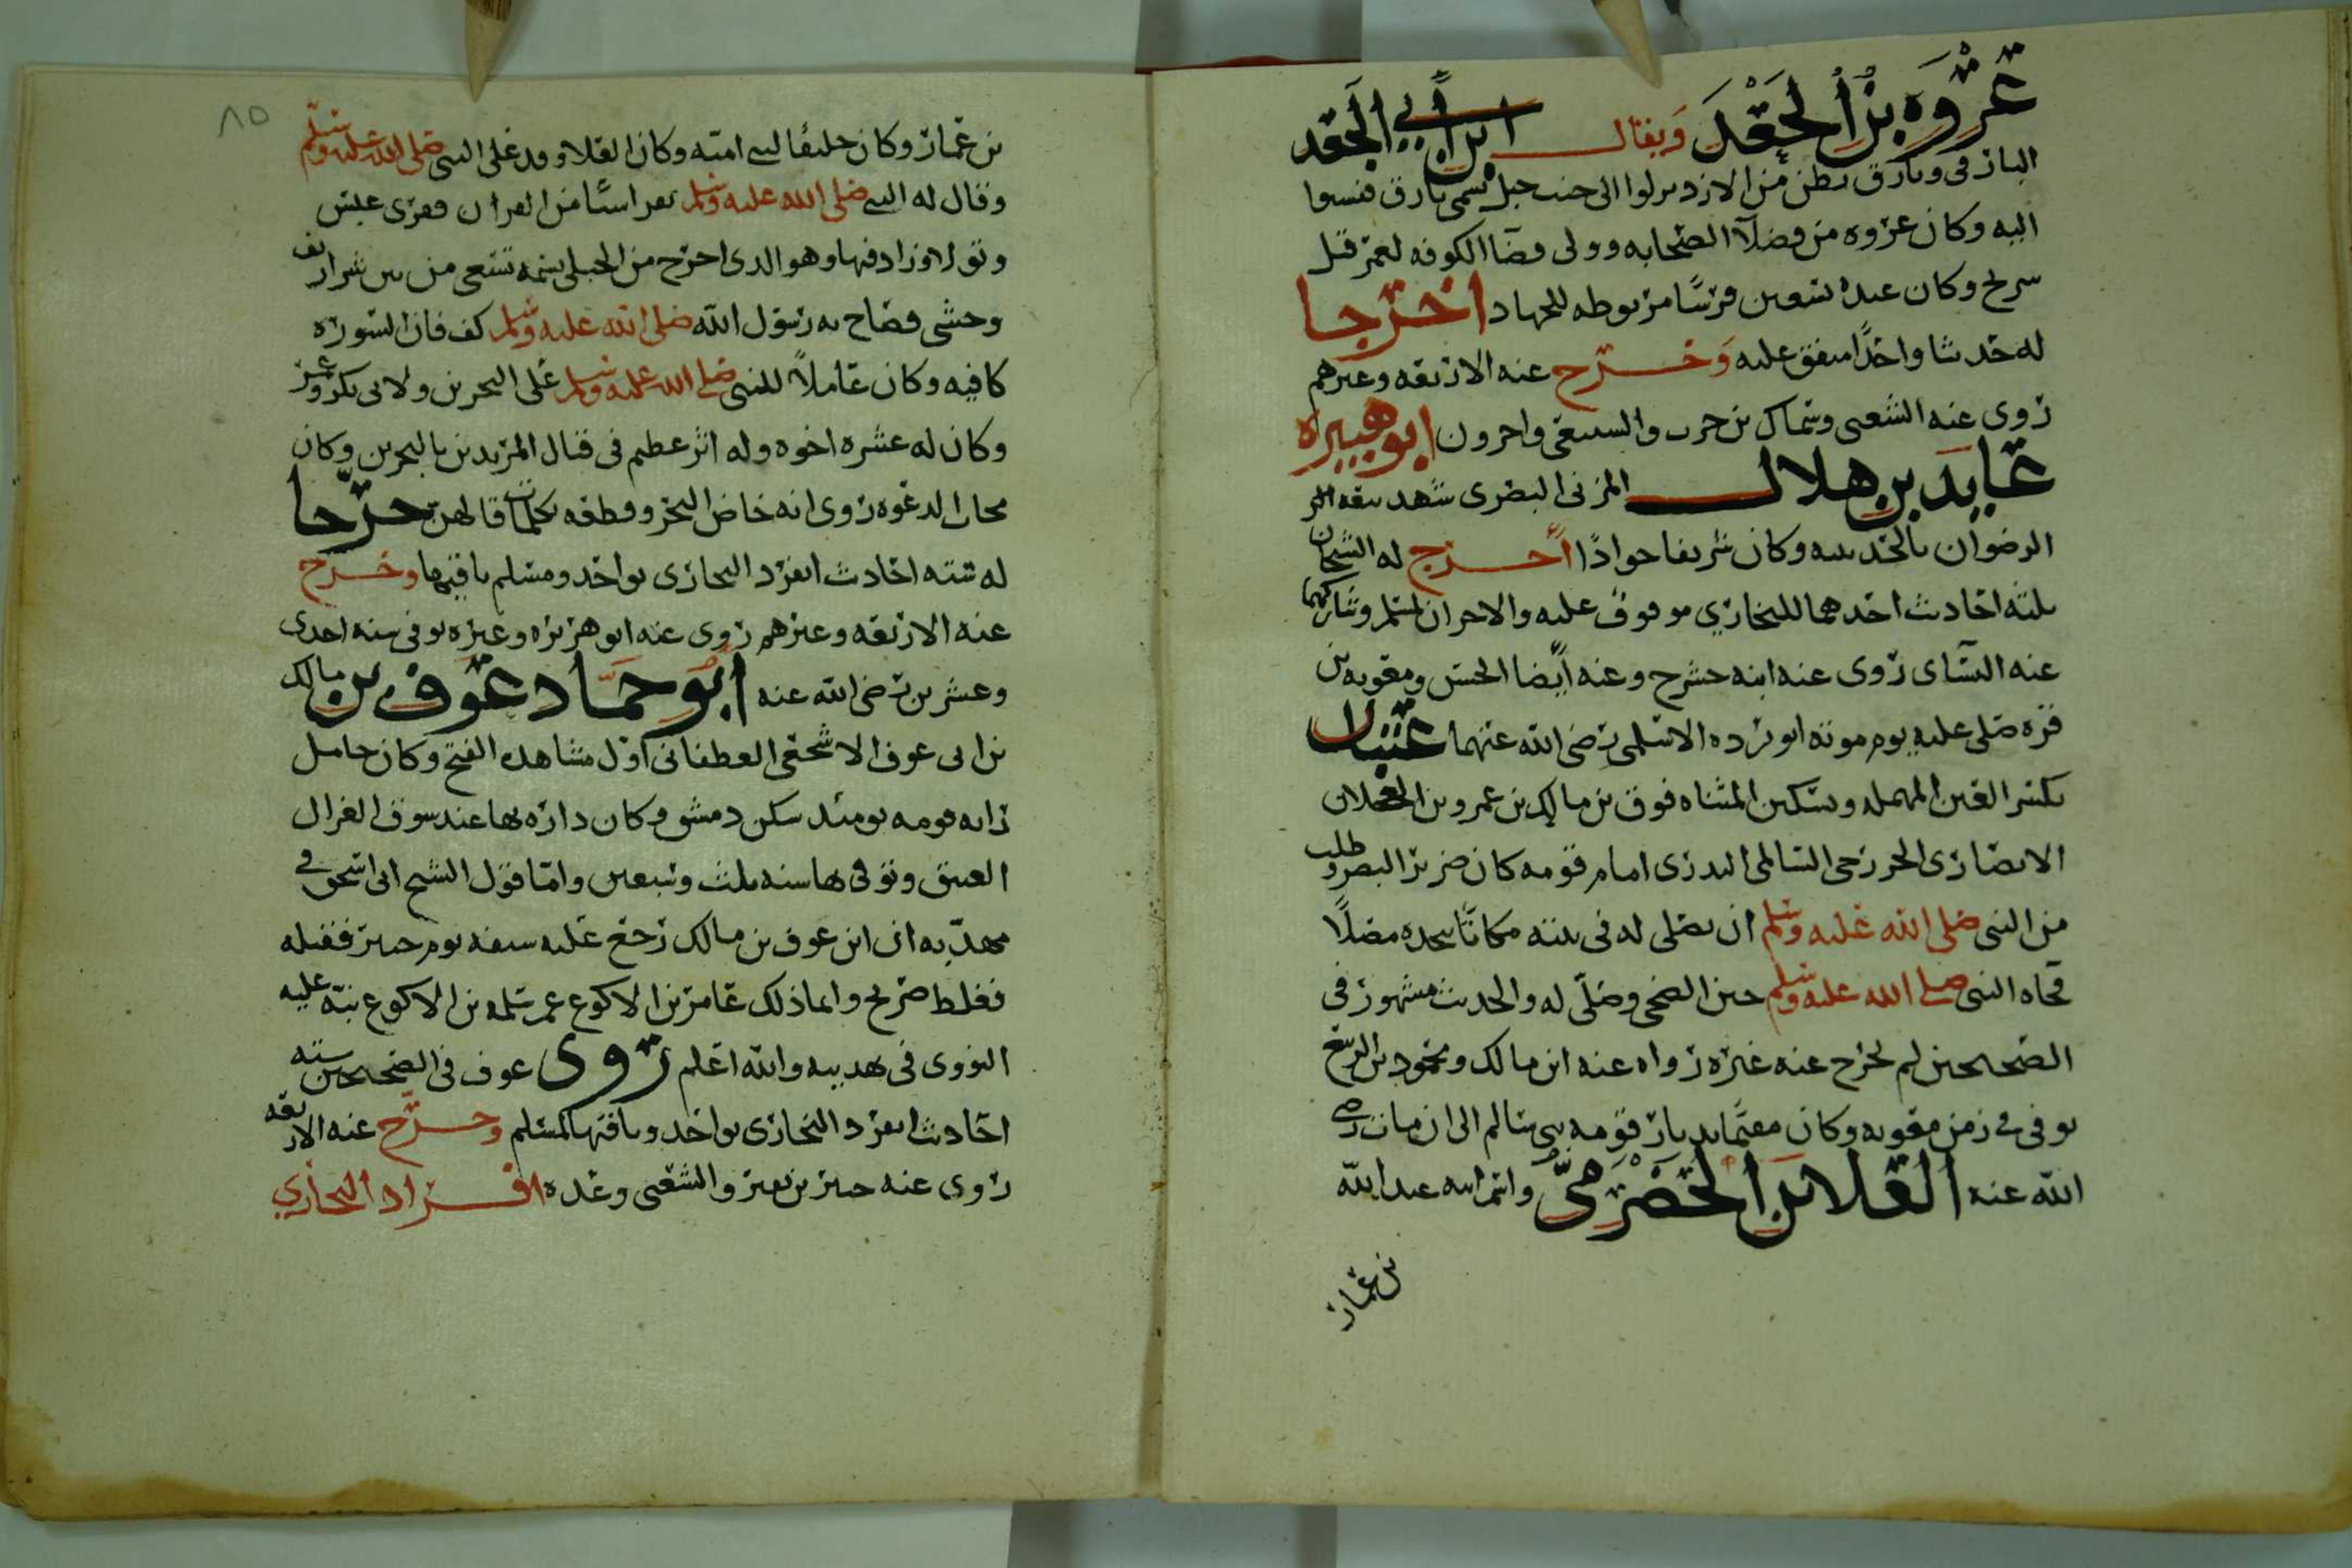 عروة بن الجعد ويقال ابن أبي الجعد
البارقي وبارق بطن من الازد نزلوا الى جنب جبل يسمى بارق فنسبوا
اليه وكان عروه من فضلآ الصحابه وولى قضآ الكوفه لعمر قبل
سريح وكان عنده سبعين فرسًا مربوطه للجهاد اخرجا
له حديثا واحدًا متفق عليه وخرج عنه الاربعه وغيرهم
روى عنه الشعبى وسماك بن حرب والسبيعى واخرون ابو هبيره
عايد بن هلال المزنى البصرى شهد بيعه
الرضوان بالحديبيه وكان شريفا جوادًا أخرج له الشيخان
ثلثه احاديث احدهما للبخاري موقوف عليه والاخران لمسلم وشاركهما
عنه النسآى روى عنه ابنه حشرج وعنه أيضا الحسن ومعويه بن
قره صلى عليه يوم موته ابو برده الاسلمى رضى الله عنهما عتبان
بكسر العين المهمله وسكين المثناه فوق بن مالك بن عمرو بن العجلان
الانصارى الخزرجى السالمى البدرى امام قومه كان ضرير البصر وطلب
من النبى صلى الله عليه وسلم ان يصلى له فى بيته مكانًا يتخذه مصلًا
فجاه النبى صلى الله عليه وسلم حين الضحى وصلّى له والحديث مشهور فى
الصحيحين لم يخرج عنه غيره رواه عنه انس بن مالك ومحمود بن الربيع
توفى فى زمن معويه وكان مقيمًا بديار قومه بنى سالم الى ان مات رضى
الله عنه العلا بن الحضرمىّ واسم ابيه عبد الله
بن عمار
٨٥
بن عمار وكان حليفا لبنى اميه وكان العلا وفد على النبى صلى الله عليه وسلم
وقال له النبى صلى الله عليه وسلم تقرا شيًا من القران فقرى عبس
وتولا وزاد فيها وهو الدى اخرج من الحبلى نسمه تسعى من بين شراسيف
وحشى فصاح به رسول الله صلى الله عليه وسلم كف فان السوره
كافيه وكان عاملاً للنبى صلى الله عليه وسلم على البحرين ولابى بكر وعمر
وكان له عشره اخوه وله اثر عظيم فى قتال المرتدين بالبحرين وكان
مجاب الدعوه روى انه خاض البحر وقطعه بكلمات قالهن خرّجا
له سته احاديث انفرد البخارى بواحد ومسلم باقيها وخرج
عنه الاربعه وغيرهم روى عنه ابو هريره وغيره توفى سنه احدى
وعشرين رضى الله عنه ابو حمّاد عوف بن مالك
بن ابى عوف الاشجعى الغطفانى اول مشاهده الفتح وكان حامل
رايه قومه يومئد سكن دمشق وكان داره بها عند سوق الغزل
العتيق وتوفى بها سنه ثلث وسبعين وامّا قول الشيخ ابى اسحق فى
مهدّبه ان ابن عوف بن مالك رجع عليه سيفه يوم حنين فقتله
فغلط صريح وانما ذلك عامر بن الاكوع عم سلمه بن الاكوع نبّه عليه
النووى فى تهديبه والله اعلم روى عوف فى الصحيحين سته
احاديث انفرد البخارى بواحد وباقيها لمسلم وخرّج عنه الاربعه
روى عنه جبير بن نفير والشعبى وعده افراد البخاري